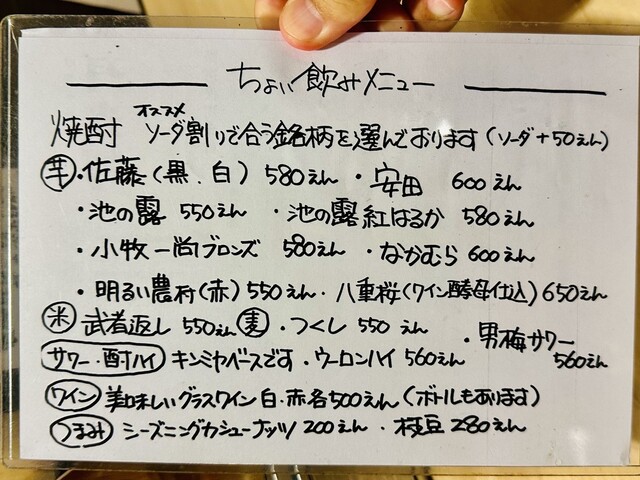 ちょい飲みメニュー
オススメ
焼酎 ソーダ割りで合う銘柄を選んでおります(ソーダ+50えん)
芋・佐藤(黒、白) 580えん ・安田 600えん
・池の露 550えん ・池の露紅はるか 580えん
・小牧一尚ブロンズ 580えん ・なかむら 600えん
・明るい農村(赤) 550えん・八重桜(ワイン酵母仕込) 650えん
米 武者返し 550えん 麦・つくし 550えん ・男梅サワー 560えん
サワー・酎ハイ キンミヤベースです・ウーロンハイ 560えん
ワイン 美味しいグラスワイン 白・赤各500えん(ボトルもあります)
つまみ シーズニングカシューナッツ 200えん ・枝豆 280えん